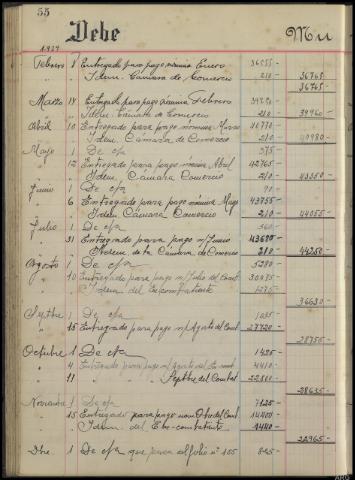 55
Debe
Mu
1937
Febrero 8 Entregado para pago nómina Enero 36555-
Idem. Cámara de Comercio 210- 36765-
36765-
Marzo 14 Entregado para pago nómina Febrero
Idem. Cámara de Comercio 210- 39960-
Abril 10 Entregado para pago nómina Marzo 40770-
Idem. Cámara de Comercio 210- 40980-
Mayo 1 De c/a 375-
" 12 Entregado para pago nómina Abril 42765-
Idem, Cámara Comercio 210- 43350-
Junio 1 De c/a 90-
" 6 Entregado para pago nómina Mayo 43755-
Idem Cámara Comercio 210- 44055-
Julio 1 De c/a 360-
" 31 Entregado para pago n/ Junio 43680-
Idem de la Camara de Comercio 210- 44250-
Agosto 1 De c/a 5280-
" 10 Entregado para pago n/ Julio del Comb
Idem del Excombatiente 1275-
36630-
Sptbre 1 De c/a 1035-
" 15 Entregado para pago n/ Agosto del Comb. 27720-
28755-
Octubre 1 De c/a 1425-
" 4 Entregado para pago n/ Agosto del 4410-
" 11 " Septbre del Combat 22800-
28635-
Noviembre 1 De c/a 7125-
" 15 Entregado para pago nom Obre del Comb 14400-
" Idem. del Ex-combatiente 1440-
22965-
Dbre. 1 De c/a que pasa al folio nº 105 825-